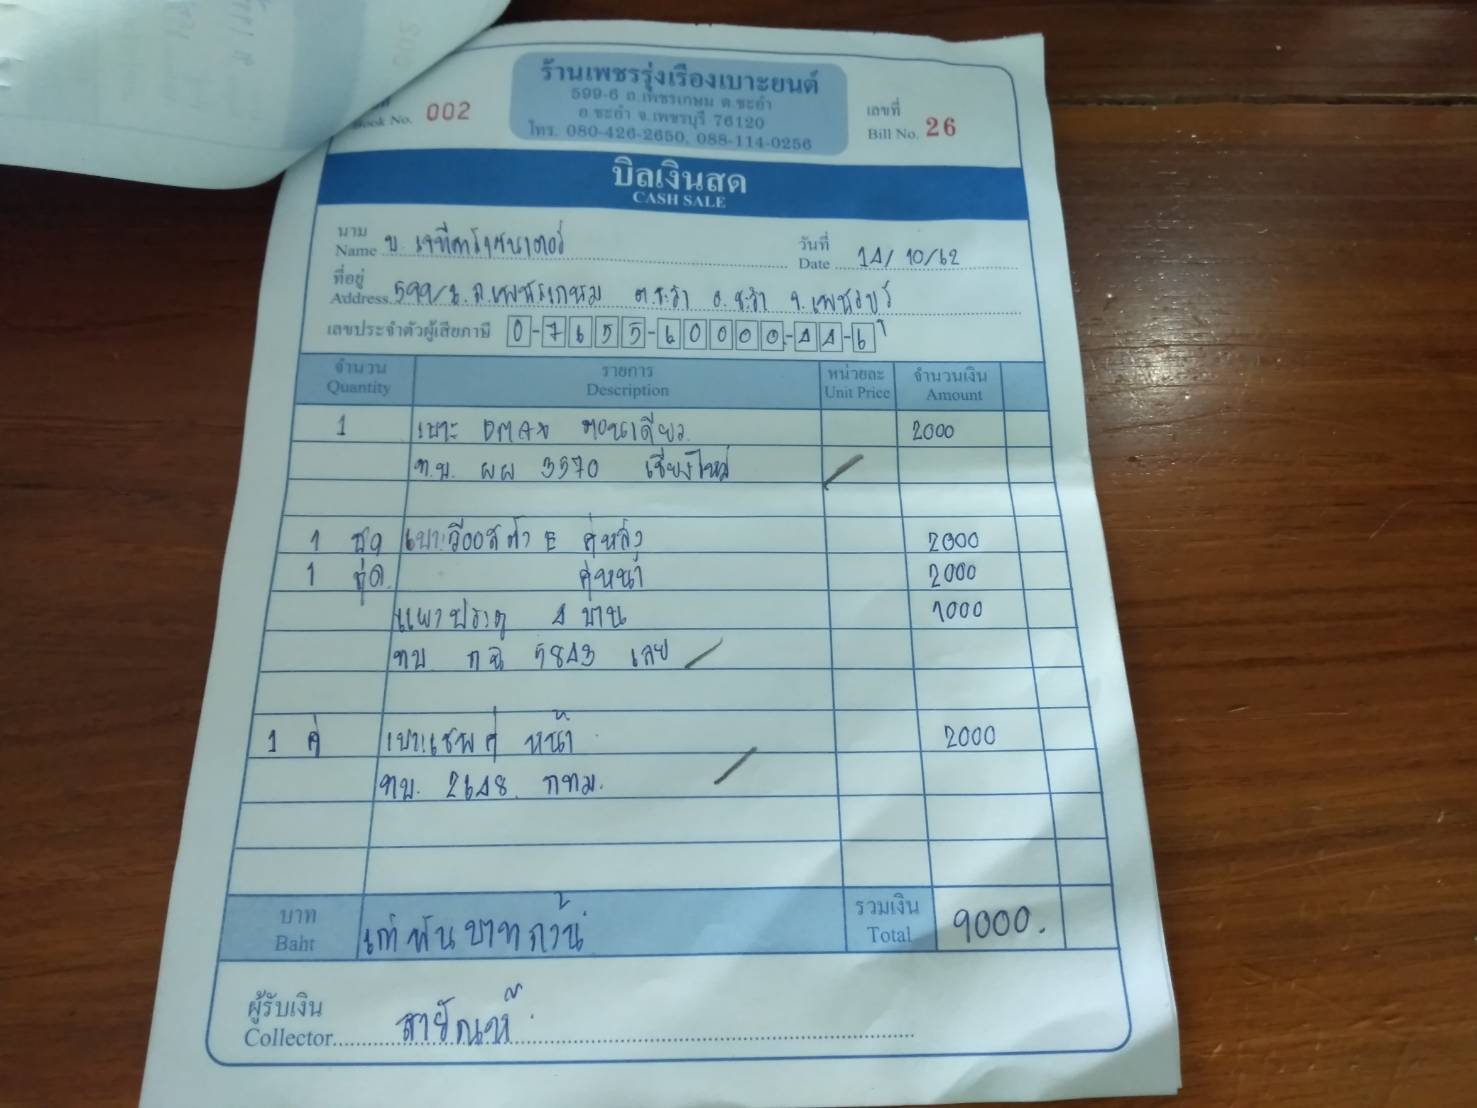 ร้านเพชรรุ่งเรืองเบาะยนต์
599-6 ถ.เพชรเกษม ต.ชะอำ
อ.ชะอำ จ.เพชรบุรี 76120
โทร. 080-426-2650, 088-114-0256
Book No. 002
เลขที่
Bill No. 26
บิลเงินสด
CASH SALE
นาม
Name บ.
วันที่
Date 14/10/62
ที่อยู่
Address ถ.เพชรเกษม ต.ชะอำ อ.ชะอำ จ.เพชรบุรี
เลขประจำตัวผู้เสียภาษี 0-7655-60000-44-6
จำนวน รายการ หน่วยละ จำนวนเงิน
Quantity Description Unit Price Amount
1 เบาะ DMAX ตอนเดียว 2000
ท.บ. ผผ 3570 เชียงใหม่
1 ชุด เบาะวีออสตัว E คู่หลัง 2000
1 ชุด คู่หน้า 2000
แผงประตู 4 บาน 1000
ทบ กฉ 5843 เลย
1 คู่ เบาะแชพคู่ หน้า 2000
ทบ. 2648 กทม.
บาท เก้าพันบาทถ้วน รวมเงิน 9000.
Baht Total
ผู้รับเงิน
Collector สายัณห์